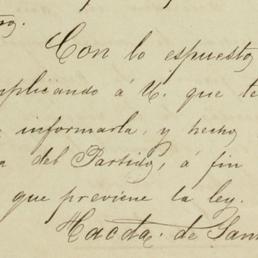 Con lo espuesto
mplicando á V. que te
informarla, y hecho
a del Partido, á fin
que previene la ley.
Hacda. de San